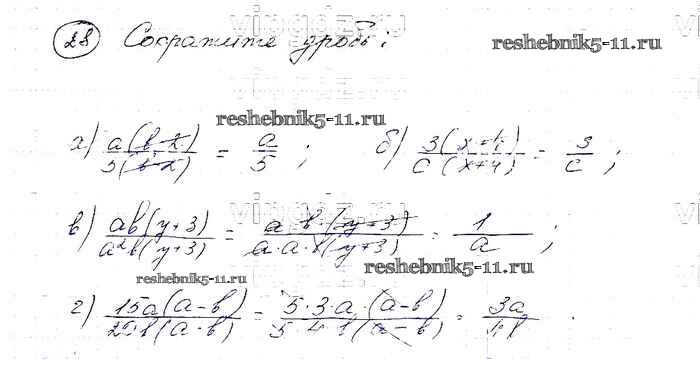 28 Сократите дробь:
reshebnik5-11.ru
reshebnik5-11.ru
а) a(b-2)/5(b-2) = a/5 ; б) 3(x+4)/c(x+4) = 3/c ;
в) ab(y+3)/a²b(y+3) = a·b·(y+3)/a·a·b(y+3) = 1/a ;
reshebnik5-11.ru
reshebnik5-11.ru
г) 15a(a-b)/20b(a-b) = 5·3·a·(a-b)/5·4·b(a-b) = 3a/4b .